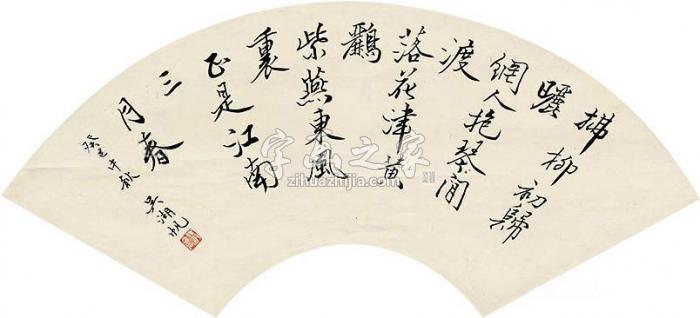 拂柳初歸
曬
網人抱琴閒
渡
落花津黃
鸝
紫燕東風
裏
正是江南
三
月春
癸巳中秋 吳湖帆
字画之家
zihuazhijia.com